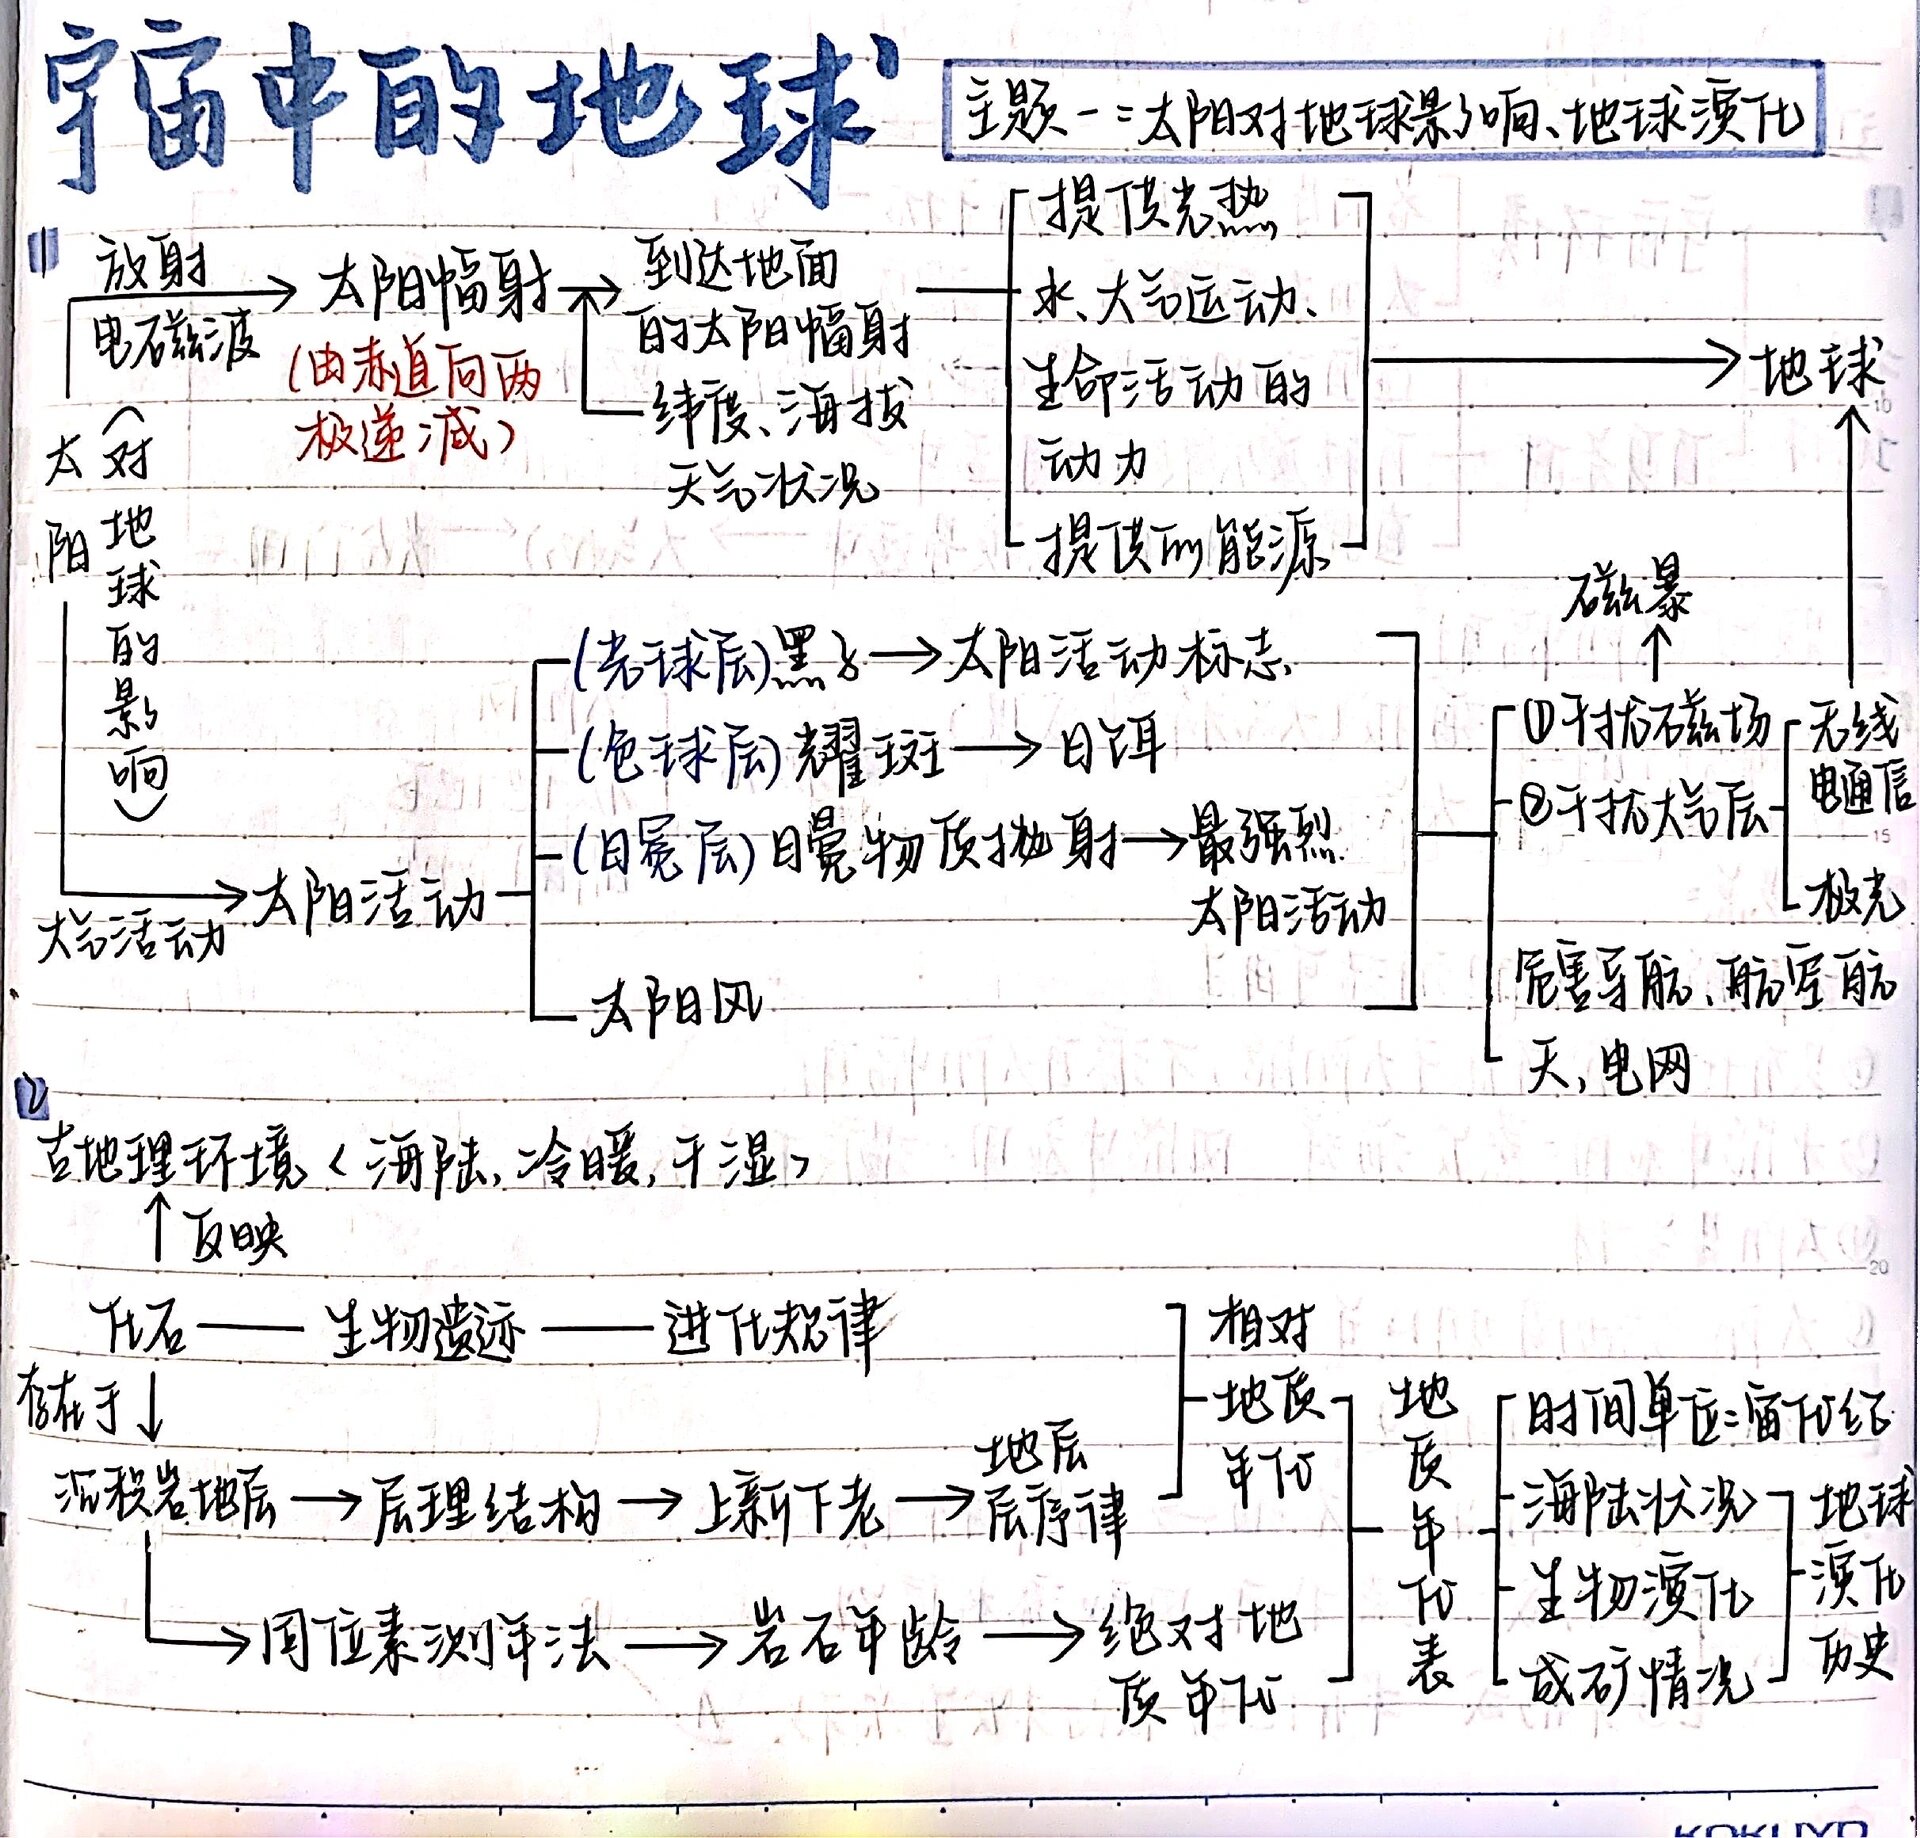 宇宙中的地球
主题一:太阳对地球影响、地球演化
1
放射
电磁波
太阳
(对地球的影响)
太阳幅射
(由赤道向两
极递减)
到达地面
的太阳幅射
纬度、海拔
天气状况
提供光热
水、大气运动、
生命活动的
动力
提供而能源
地球
大气活动
太阳活动
(光球层)黑子
太阳活动标志.
(色球层)耀斑
日饵
(日冕层)日冕物质抛射
最强烈
太阳活动
太阳风
磁暴
①干扰磁场
②干扰大气层
无线
电通信
极光
危害导航、航空航
天,电网
2
古地理环境<海陆,冷暖,干湿>
反映
化石
生物遗迹
进化规律
存在于
沉积岩地层
层理结构
上新下老
地层
层序律
相对
地质
年代
同位素测年法
岩石年龄
绝对地
质年代
地质年代表
时间单位:宙代纪
海陆状况
生物演化
成矿情况
地球
演化
历史
KOKUYO